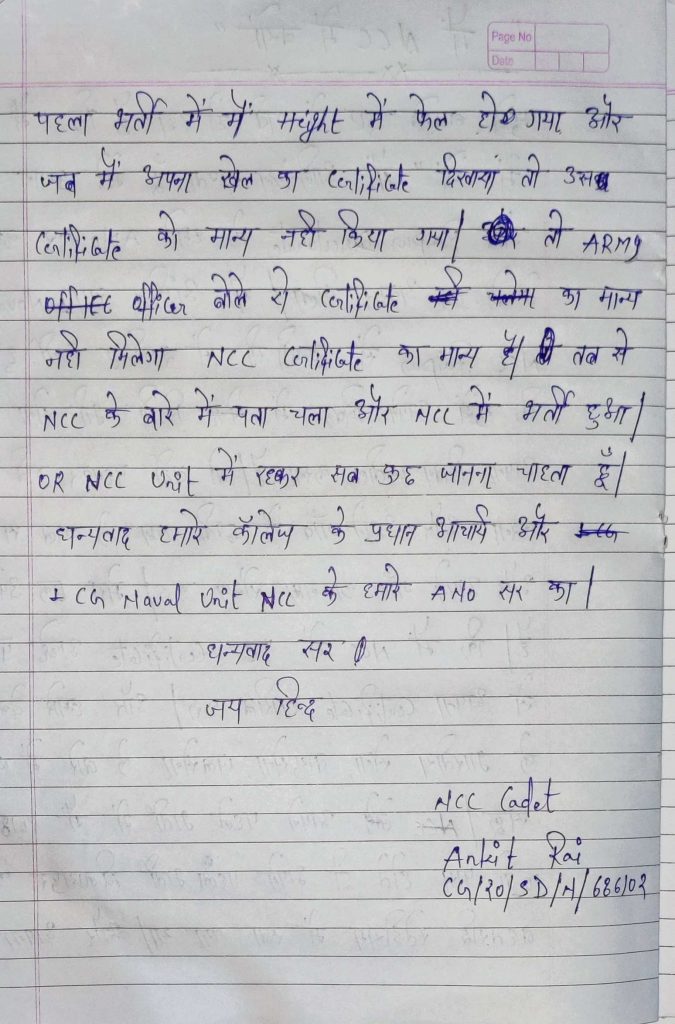 Page No
Date
पहला भर्ती में मैं Height में फेल हो गया और
जब मैं अपना खेल का Certificate दिखाया तो उस
Certificate को मान्य नही किया गया| तो ARMY
officer बोले ये Certificate का मान्य
नही मिलेगा NCC Certificate का मान्य है| तब से
NCC के बारे में पता चला और NCC में भर्ती हुआ|
OR NCC Unit में रहकर सब कुछ जानना चाहता हूँ|
धन्यवाद हमारे कॉलेज के प्रधान आचार्य और
1 CG Naval Unit NCC के हमारे ANO सर का|
धन्यवाद सर
जय हिन्द
NCC Cadet
Ankit Rai
CG/20/SD/N/686102